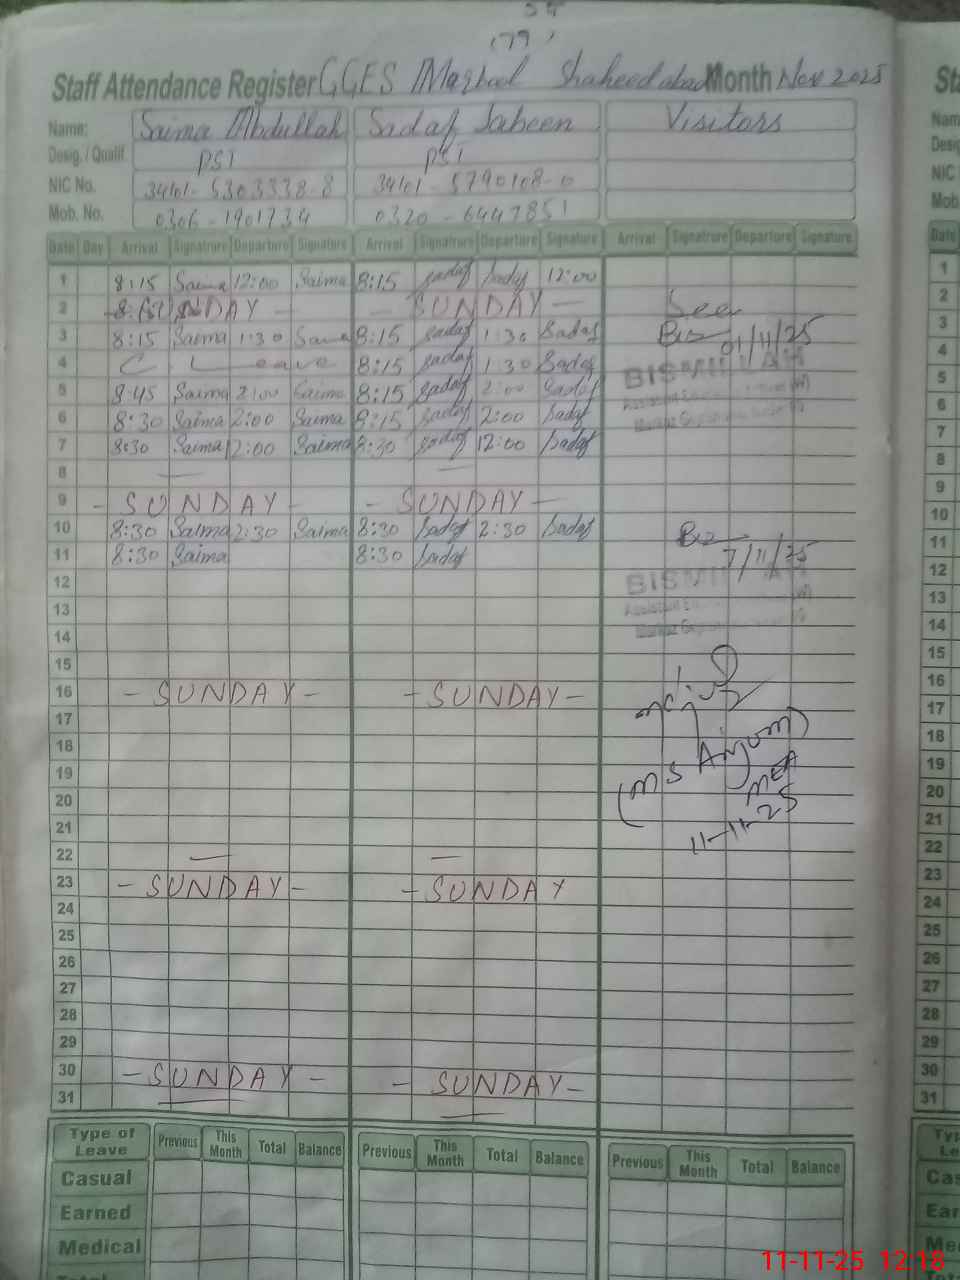 (79)
Staff Attendance Register GGES Marhal Shaheedabad Month Nov 2025
Name: Saima Abdullah Sadaf Jabeen Visitors
Desig. / Qualif. PST PST
NIC No. 34101-5303338-8 34101-5790108-0
Mob. No. 0306-1901734 0320-6447851
Date Day Arrival Signatrure Departure Signature Arrival Signatrure Departure Signature Arrival Signatrure Departure Signature
1 8:15 Saima 12:00 Saima 8:15 Sadaf Sadaf 12:00
2 SUNDAY - - SUNDAY - See
3 8:15 Saima 1:30 Saima 8:15 Sadaf 1:30 Sadaf 01/11/25
4 C. Leave 8:15 Sadaf 1:30 Sadaf BISMILLAH
5 8:45 Saima 2:00 Saima 8:15 Sadaf 2:00 Sadaf Assistant
6 8:30 Saima 2:00 Saima 8:15 Sadaf 2:00 Sadaf
7 8:30 Saima 12:00 Saima 8:30 Sadaf 12:00 Sadaf
8 —
9 - SUNDAY - - SUNDAY -
10 8:30 Saima 2:30 Saima 8:30 Sadaf 2:30 Sadaf
11 8:30 Saima 8:30 Sadaf 7/11/25
12 BISMILLAH
13 Assistant
14
15
16 - SUNDAY - - SUNDAY -
17
18 (MS Anjum)
19 MEA
20 11-11-25
21
22 — —
23 - SUNDAY - - SUNDAY
24
25
26
27
28
29
30 - SUNDAY - - SUNDAY -
31
Type of Leave Previous This Month Total Balance Previous This Month Total Balance Previous This Month Total Balance
Casual
Earned
Medical
11-11-25 12:18